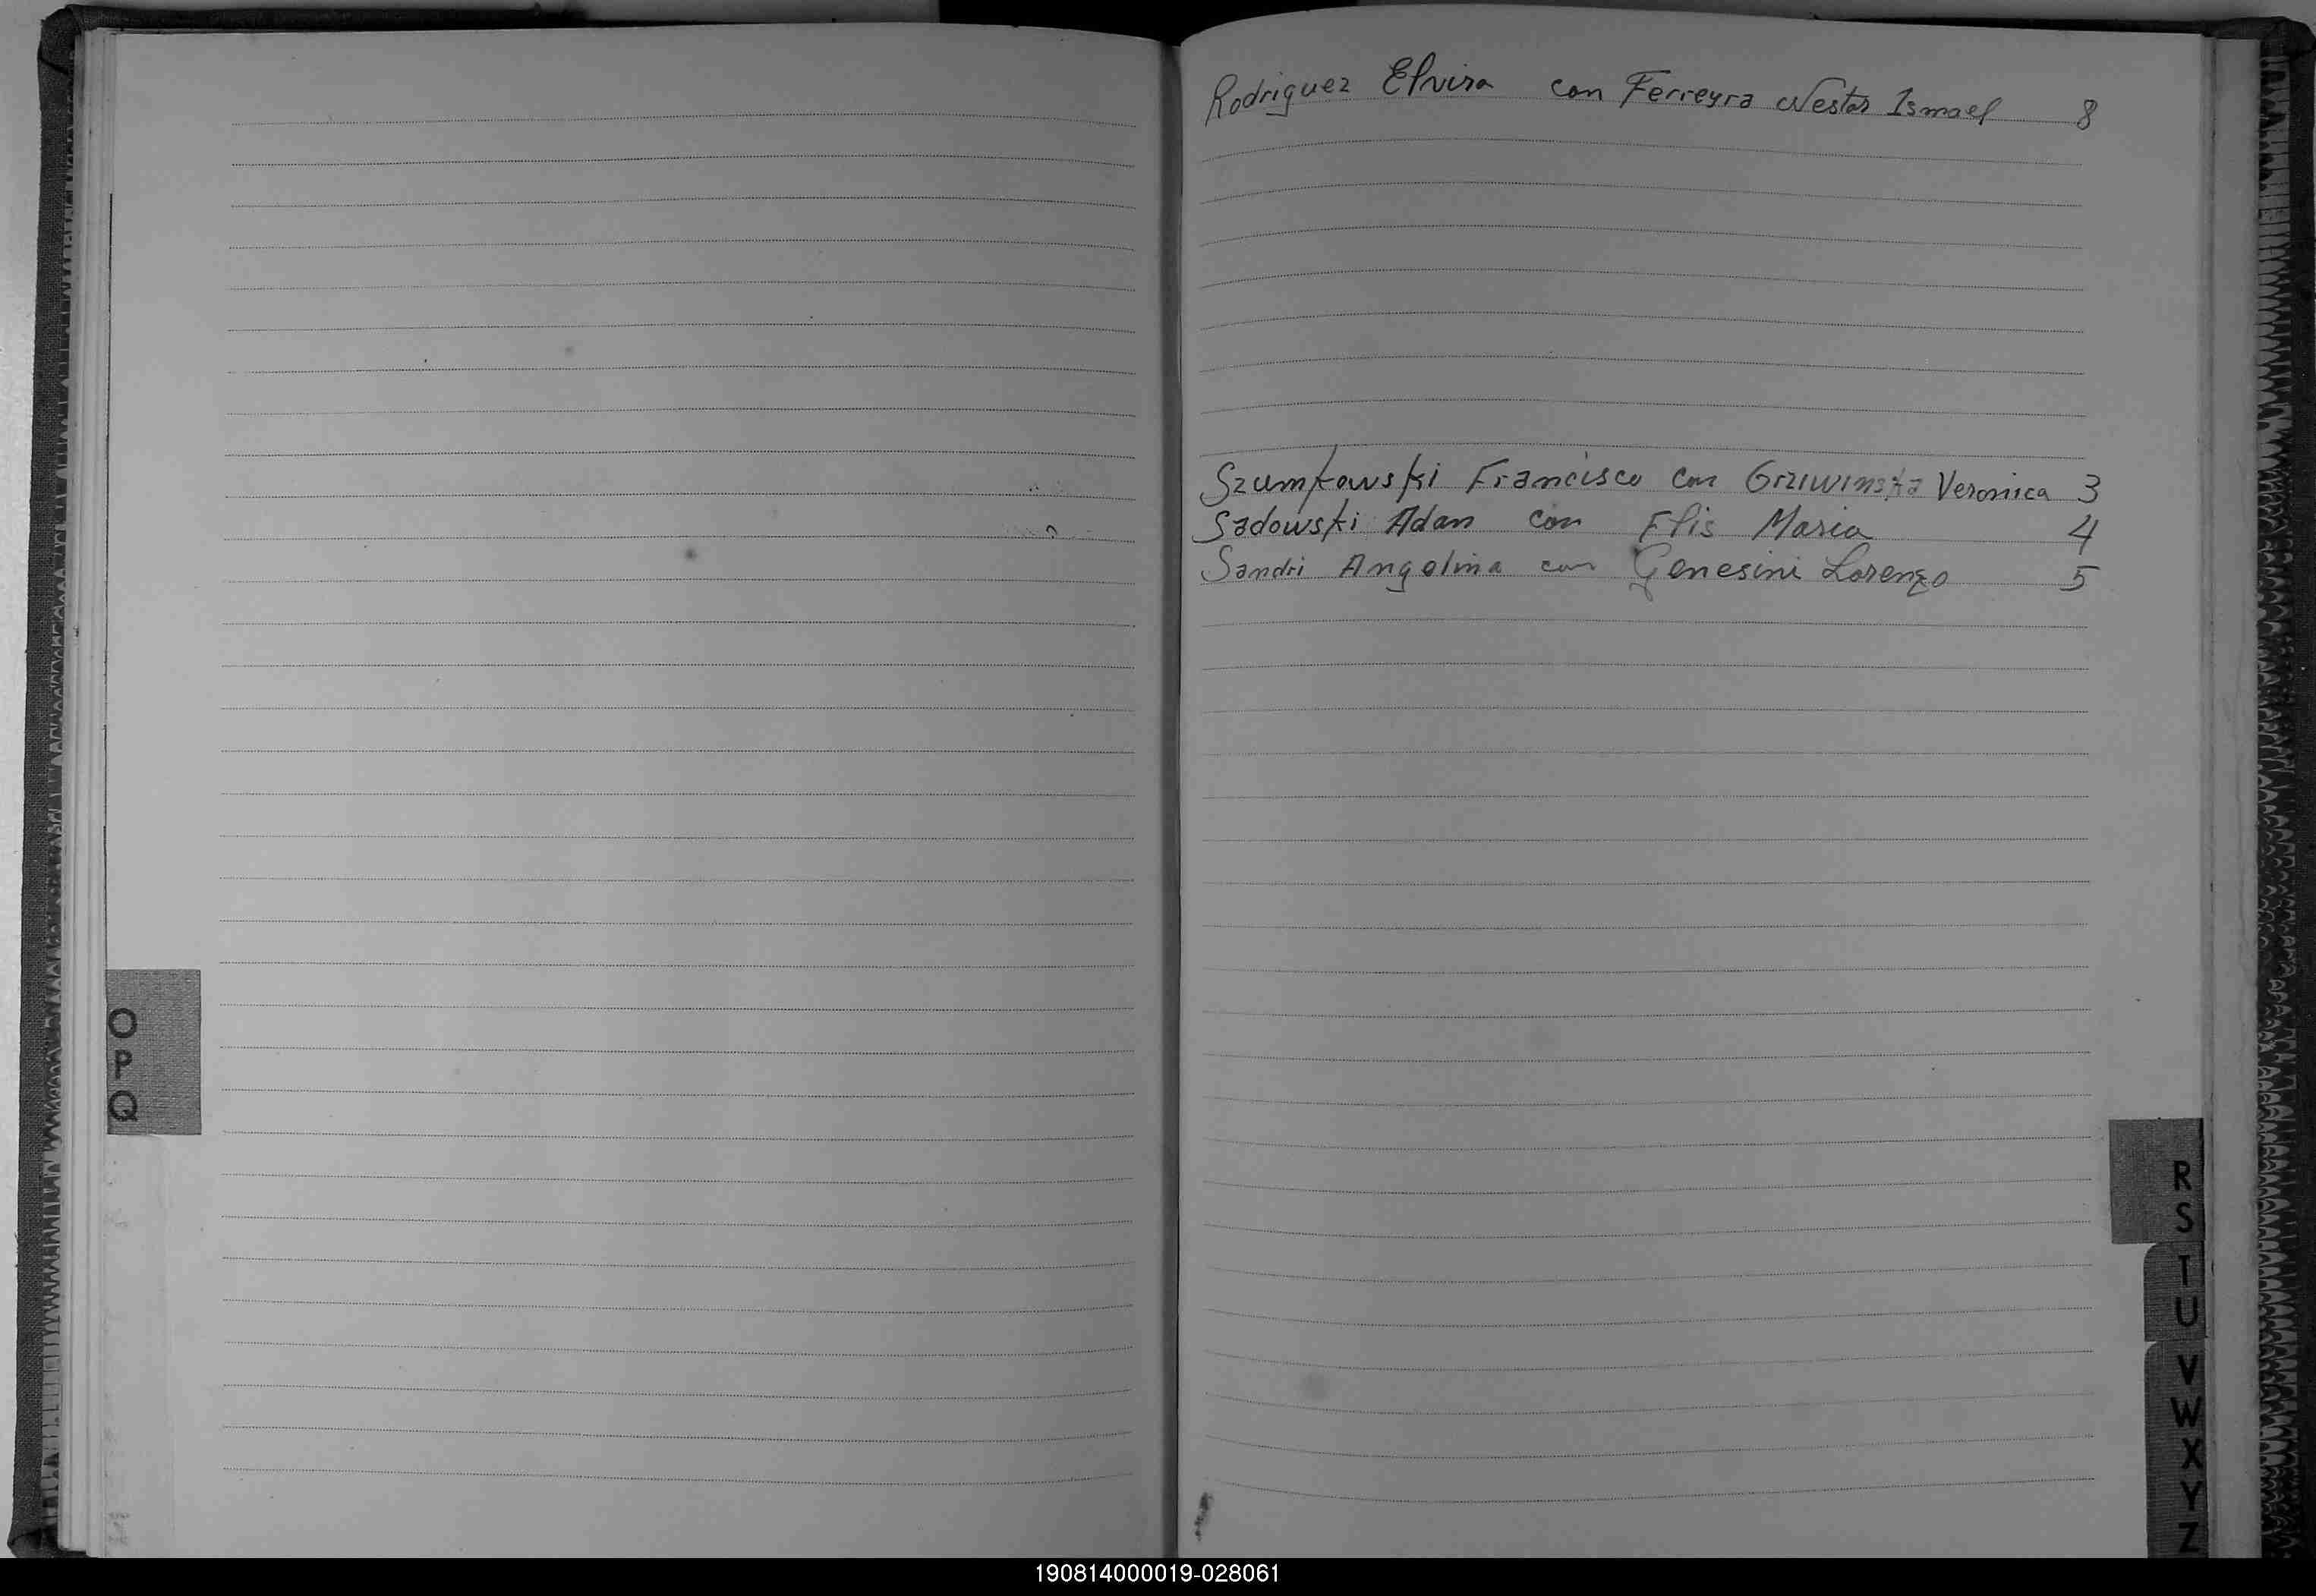 Rodriguez Elvira con Ferreyra Nestor Ismael 8
Szumkowski Francisco con Griwinska Veronica 3
Sadowski Adan con Elis Maria 4
Sandri Angelina con Genesini Lorenzo 5
O
P
Q
R
S
T
U
V
W
X
Y
Z
190814000019-028061